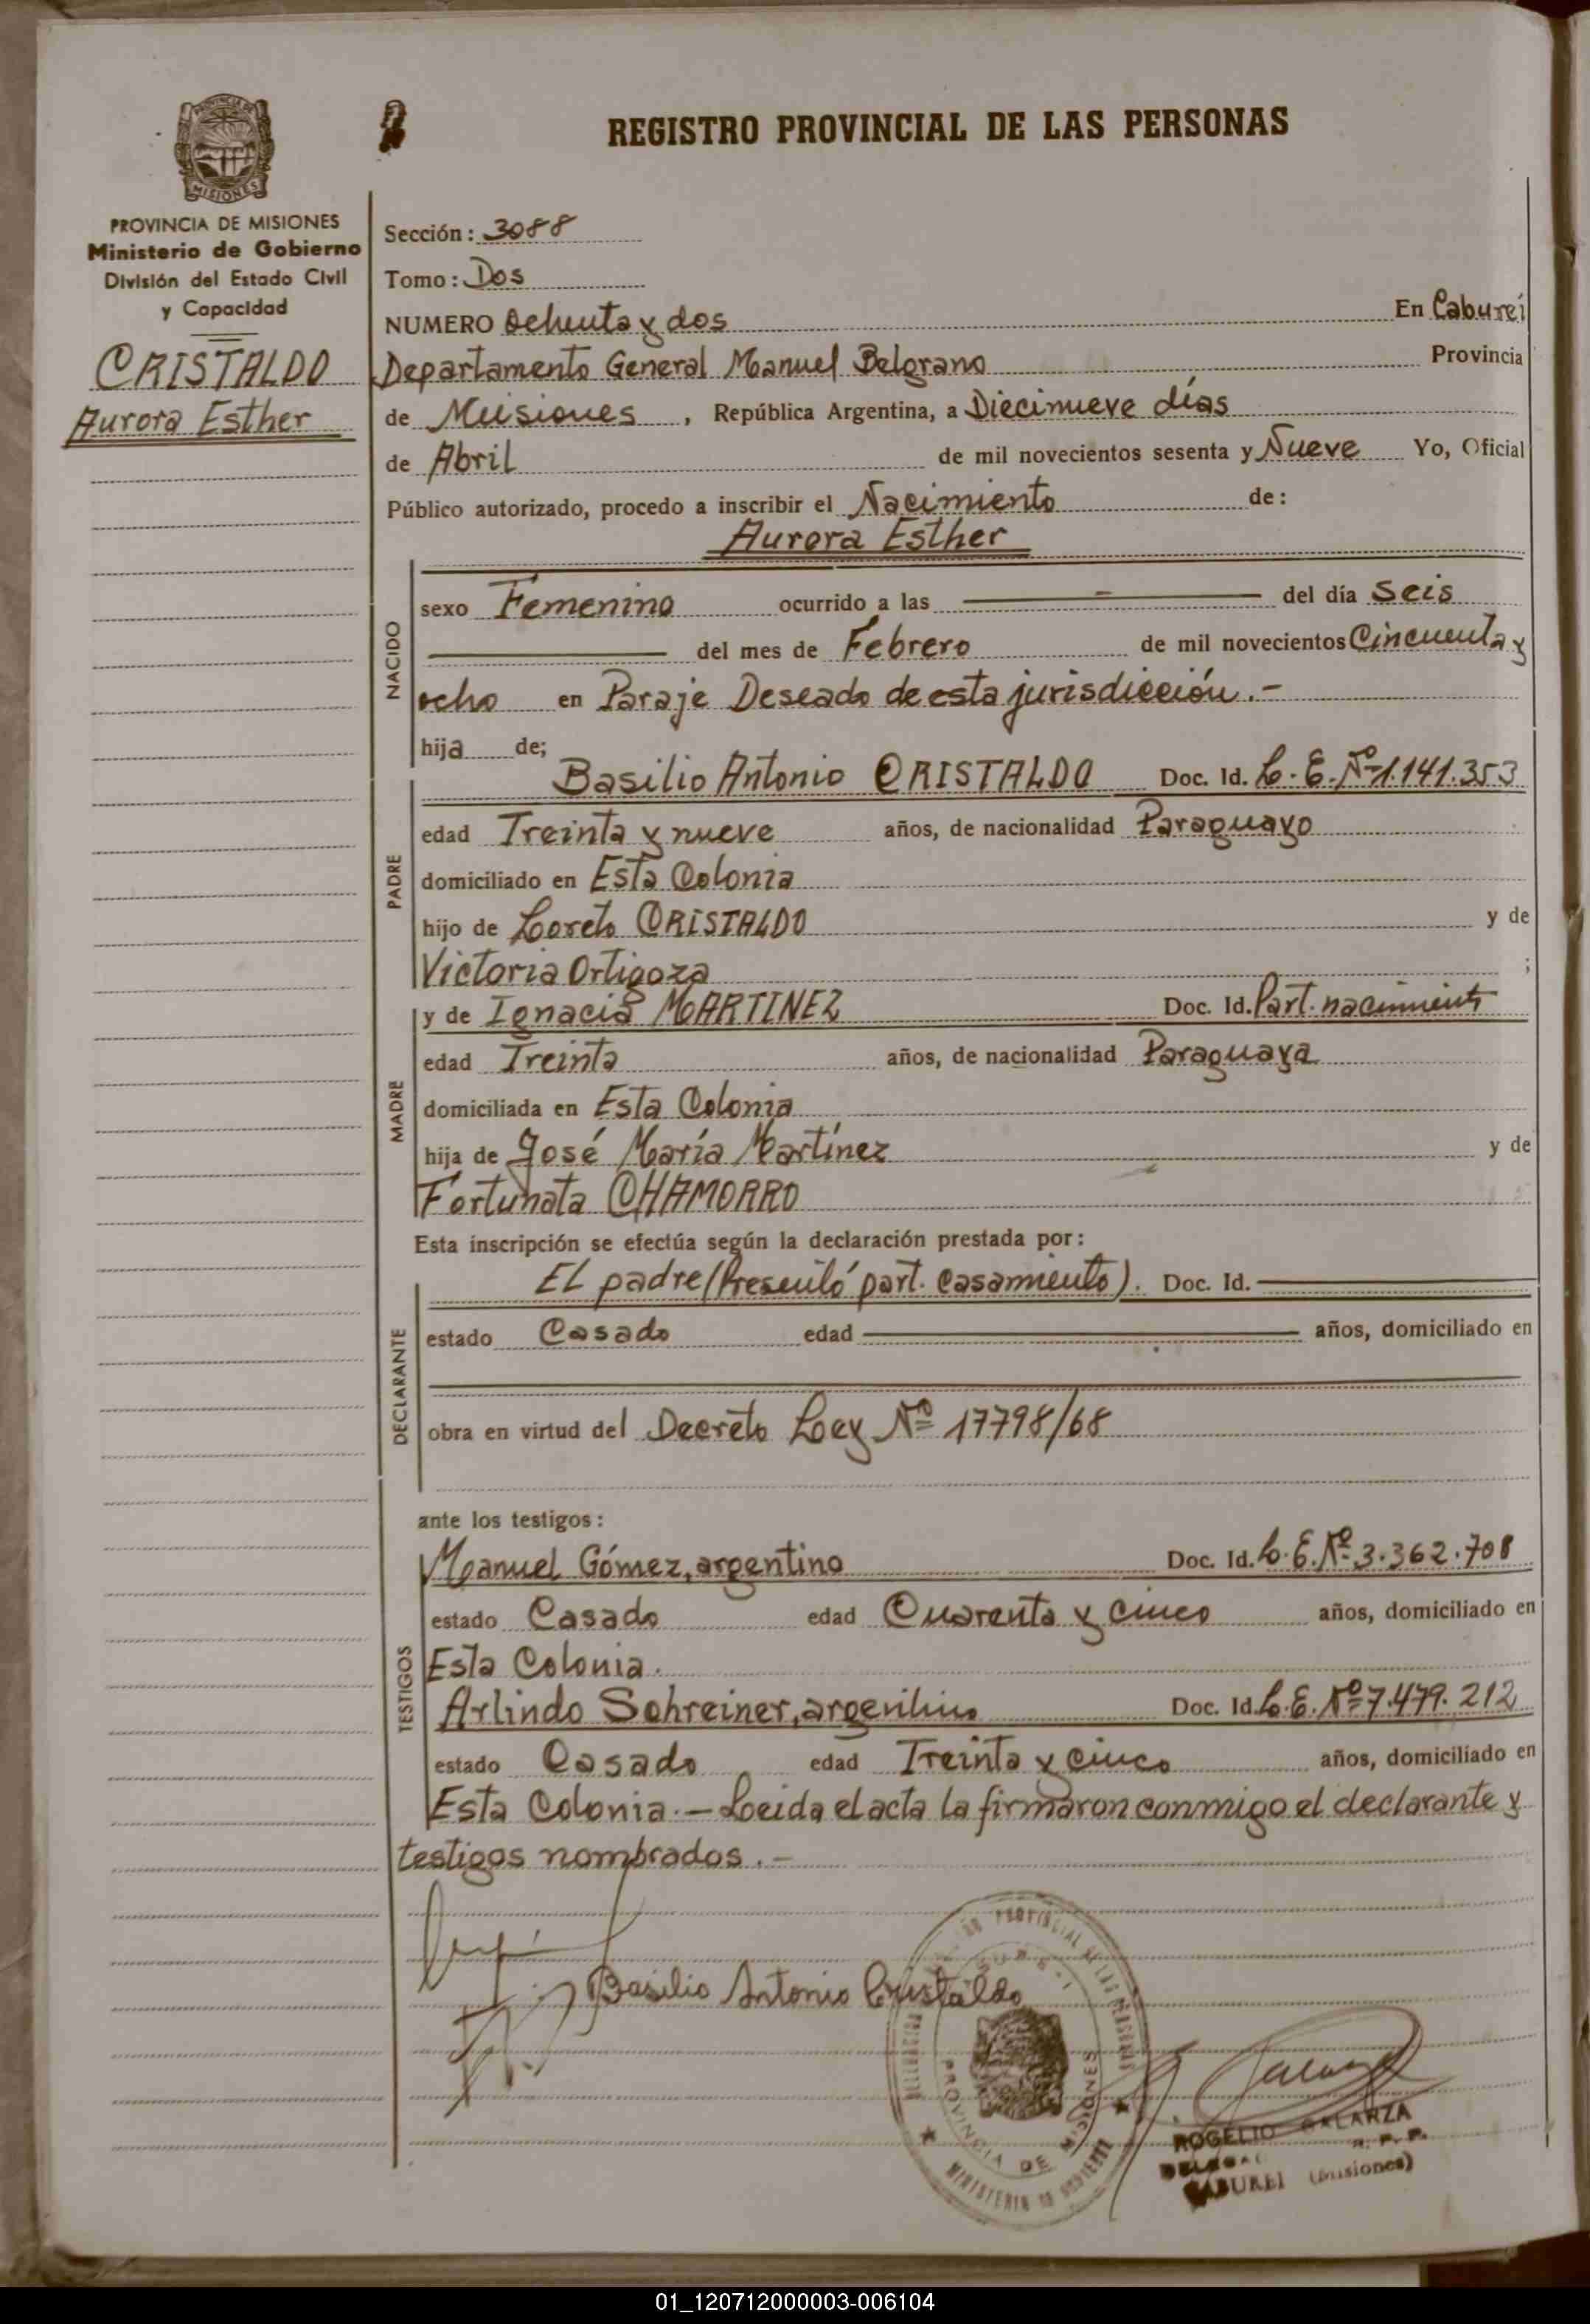 REGISTRO PROVINCIAL DE LAS PERSONAS
PROVINCIA DE
MISIONES
PROVINCIA DE MISIONES
Ministerio de Gobierno
División del Estado Civil
y Capacidad
CRISTALDO
Aurora Esther
Sección: 3088
Tomo: Dos
NUMERO Ochenta y dos En Cabureí
Departamento General Manuel Belgrano Provincia
de Misiones, República Argentina, a Diecinueve días
de Abril de mil novecientos sesenta y Nueve Yo, Oficial
Público autorizado, procedo a inscribir el Nacimiento de:
Aurora Esther
NACIDO
sexo Femenino ocurrido a las — del día Seis
— del mes de Febrero de mil novecientos Cincuenta y
ocho en Paraje Deseado de esta jurisdicción.-
hija de;
PADRE
Basilio Antonio CRISTALDO Doc. Id. L.E. Nº 1.141.353
edad Treinta y nueve años, de nacionalidad Paraguayo
domiciliado en Esta Colonia
hijo de Loreto CRISTALDO y de
Victoria Ortigoza ;
MADRE
y de Ignacia MARTINEZ Doc. Id. Part. nacimiento
edad Treinta años, de nacionalidad Paraguaya
domiciliada en Esta Colonia
hija de José María Martínez y de
Fortunata CHAMORRO
Esta inscripción se efectúa según la declaración prestada por:
DECLARANTE
EL padre (Presentó part. casamiento). Doc. Id. —
estado Casado edad — años, domiciliado en
obra en virtud del Decreto Ley Nº 17798/68
ante los testigos:
TESTIGOS
Manuel Gómez, argentino Doc. Id. L.E. Nº 3.362.708
estado Casado edad Cuarenta y cinco años, domiciliado en
Esta Colonia.
Arlindo Schreiner, argentino Doc. Id. L.E. Nº 7.479.212
estado Casado edad Treinta y cinco años, domiciliado en
Esta Colonia.— Leida el acta la firmaron conmigo el declarante y
testigos nombrados.-
Basilio Antonio Cristaldo
PROVINCIAL DE LAS PERSONAS
PROVINCIA DE MISIONES
MINISTERIO DE GOBIERNO
ROGELIO GALARZA
R. P. P.
CABUREI (Misiones)
01_120712000003-006104